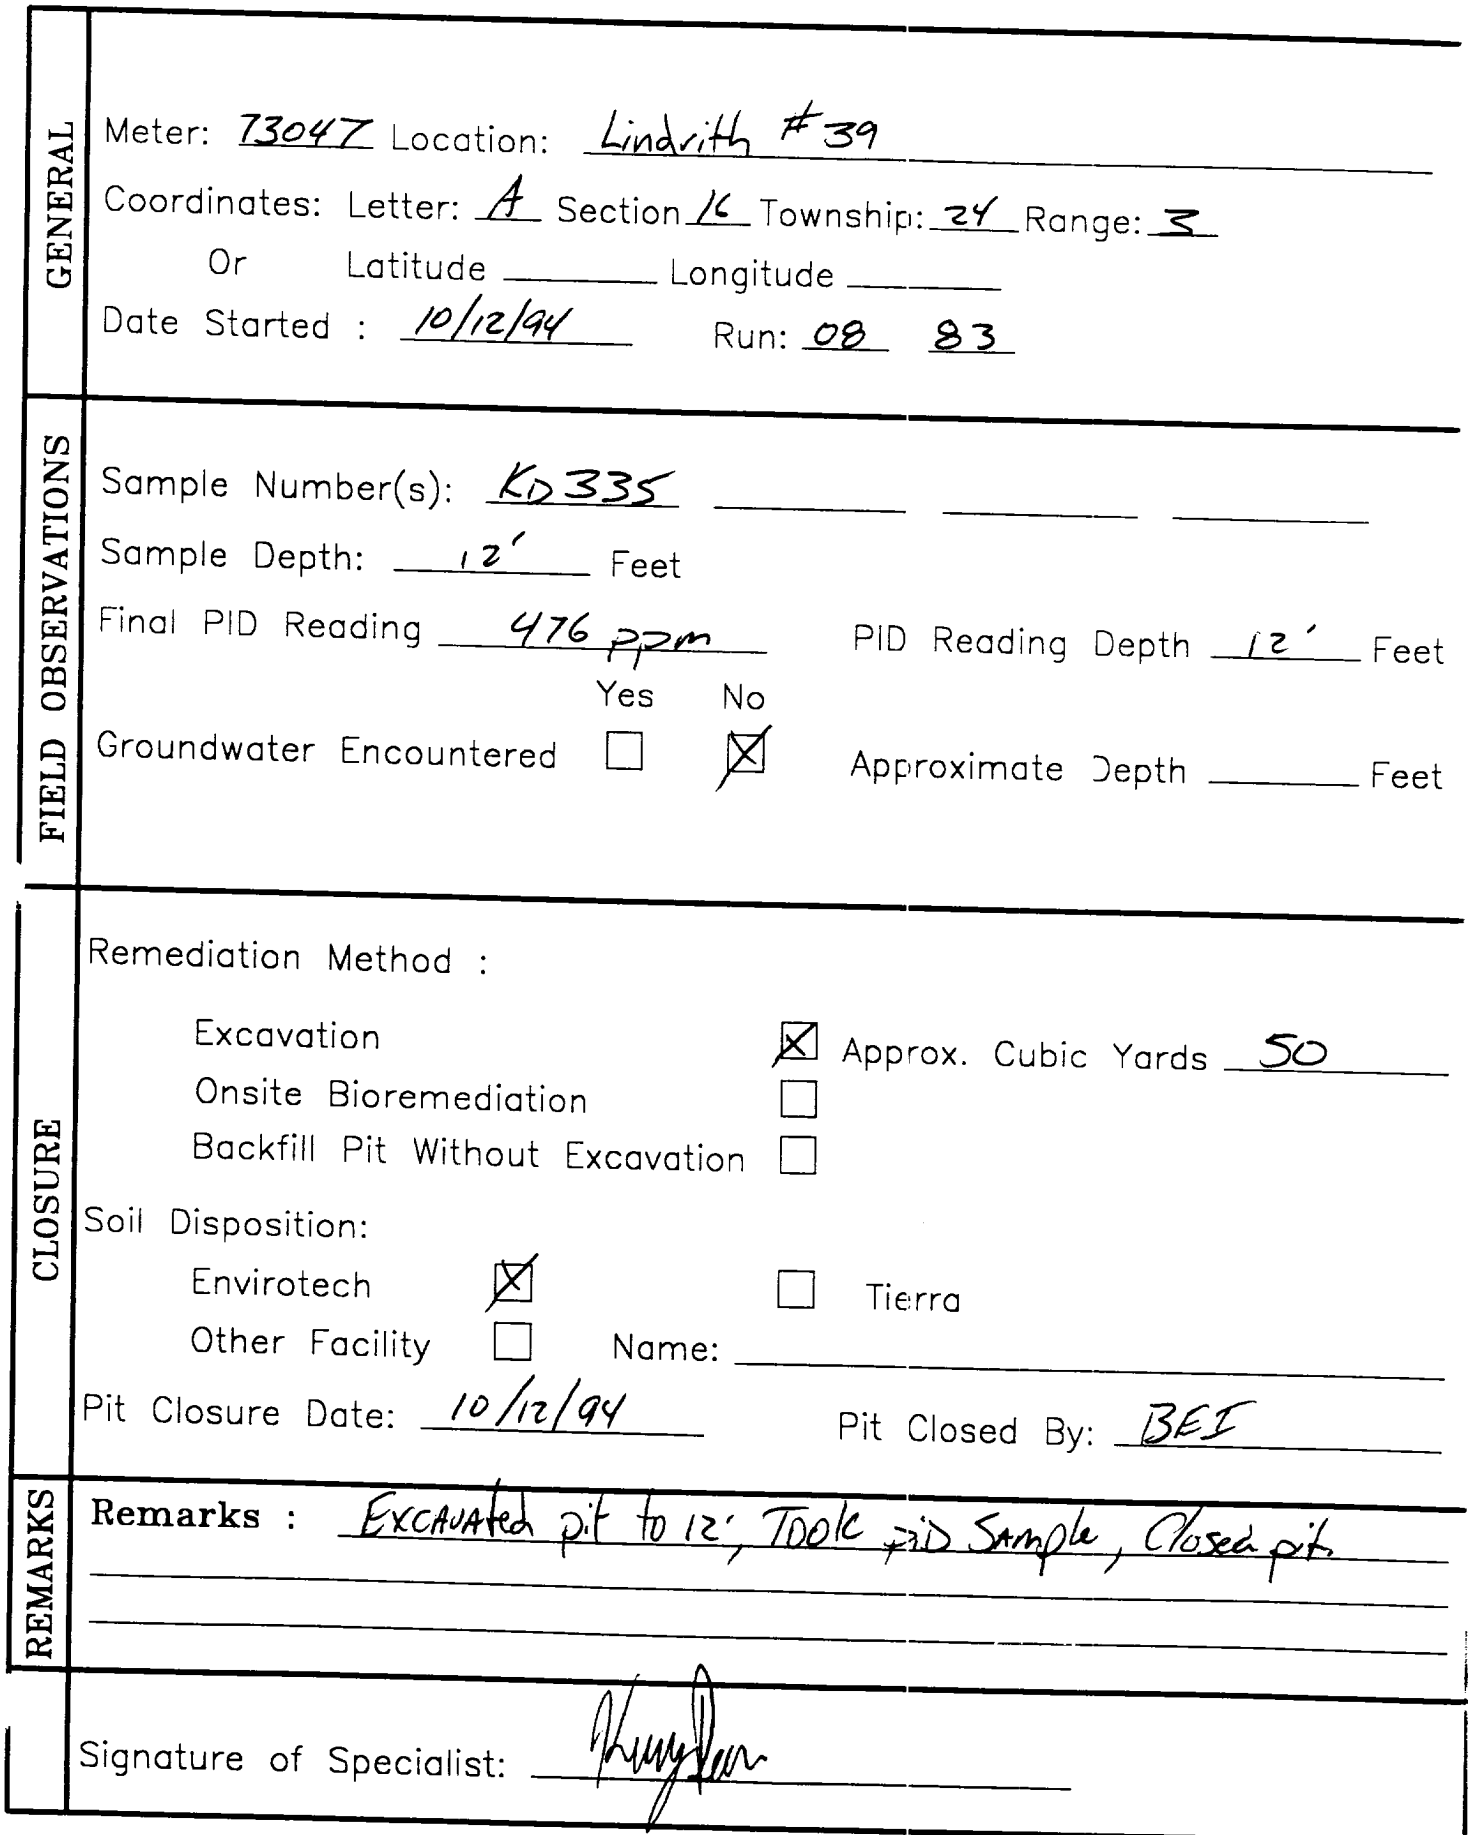 GENERAL
Meter: 73047 Location: Lindrith #39
Coordinates: Letter: A Section 16 Township: 24 Range: 3
Or Latitude ______ Longitude ______
Date Started : 10/12/94 Run: 08 83
FIELD OBSERVATIONS
Sample Number(s): KD335
Sample Depth: 12' Feet
Final PID Reading 476 ppm PID Reading Depth 12' Feet
Yes No
Groundwater Encountered ☐ ☒ Approximate Depth ______ Feet
CLOSURE
Remediation Method :
Excavation ☒ Approx. Cubic Yards 50
Onsite Bioremediation ☐
Backfill Pit Without Excavation ☐
Soil Disposition:
Envirotech ☒ ☐ Tierra
Other Facility ☐ Name: ______
Pit Closure Date: 10/12/94 Pit Closed By: BEI
REMARKS
Remarks : Excavated pit to 12', Took PID Sample, Closed pit.
Signature of Specialist: